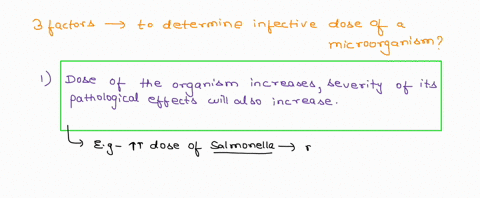 3 factors → to determine infective dose of a
microorganism?
1) Dose of the organism increases, severity of its
pathological effects will also increase.
↳ E.g- ↑↑ dose of Salmonella → r